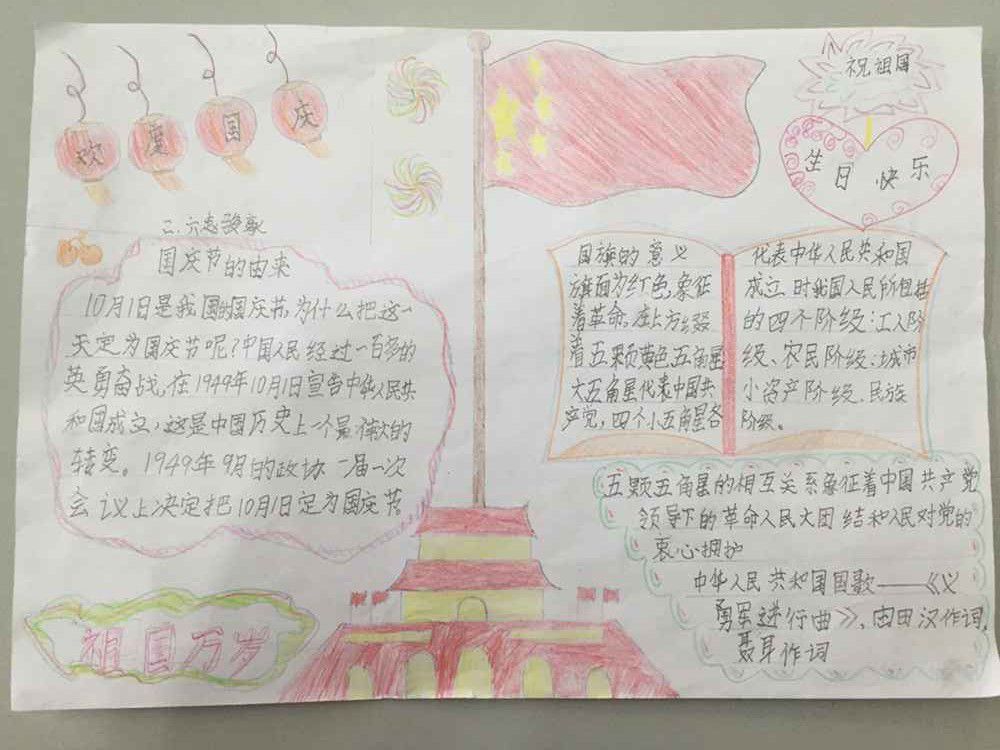 欢度国庆
祝祖国
生日快乐
二.六志骏
国庆节的由来
10月1日是我国的国庆节,为什么把这一
天定为国庆节呢?中国人民经过一百多的
英勇奋战,在1949年10月1日宣告中华人民共
和国成立,这是中国历史上一个最伟大的
转变。1949年9月的政协一届一次
会议上决定把10月1日定为国庆节
国旗的意义
旗面为红色,象征
着革命。左上方缀
着五颗黄色五角星
大五角星代表中国共
产党,四个小五角星各
代表中华人民共和国
成立时我国人民所包括
的四个阶级:工人阶
级、农民阶级、城市
小资产阶级、民族
阶级。
五颗五角星的相互关系象征着中国共产党
领导下的革命人民大团结和人民对党的
衷心拥护
中华人民共和国国歌——《义
勇军进行曲》,由田汉作词,
聂耳作词
祖国万岁